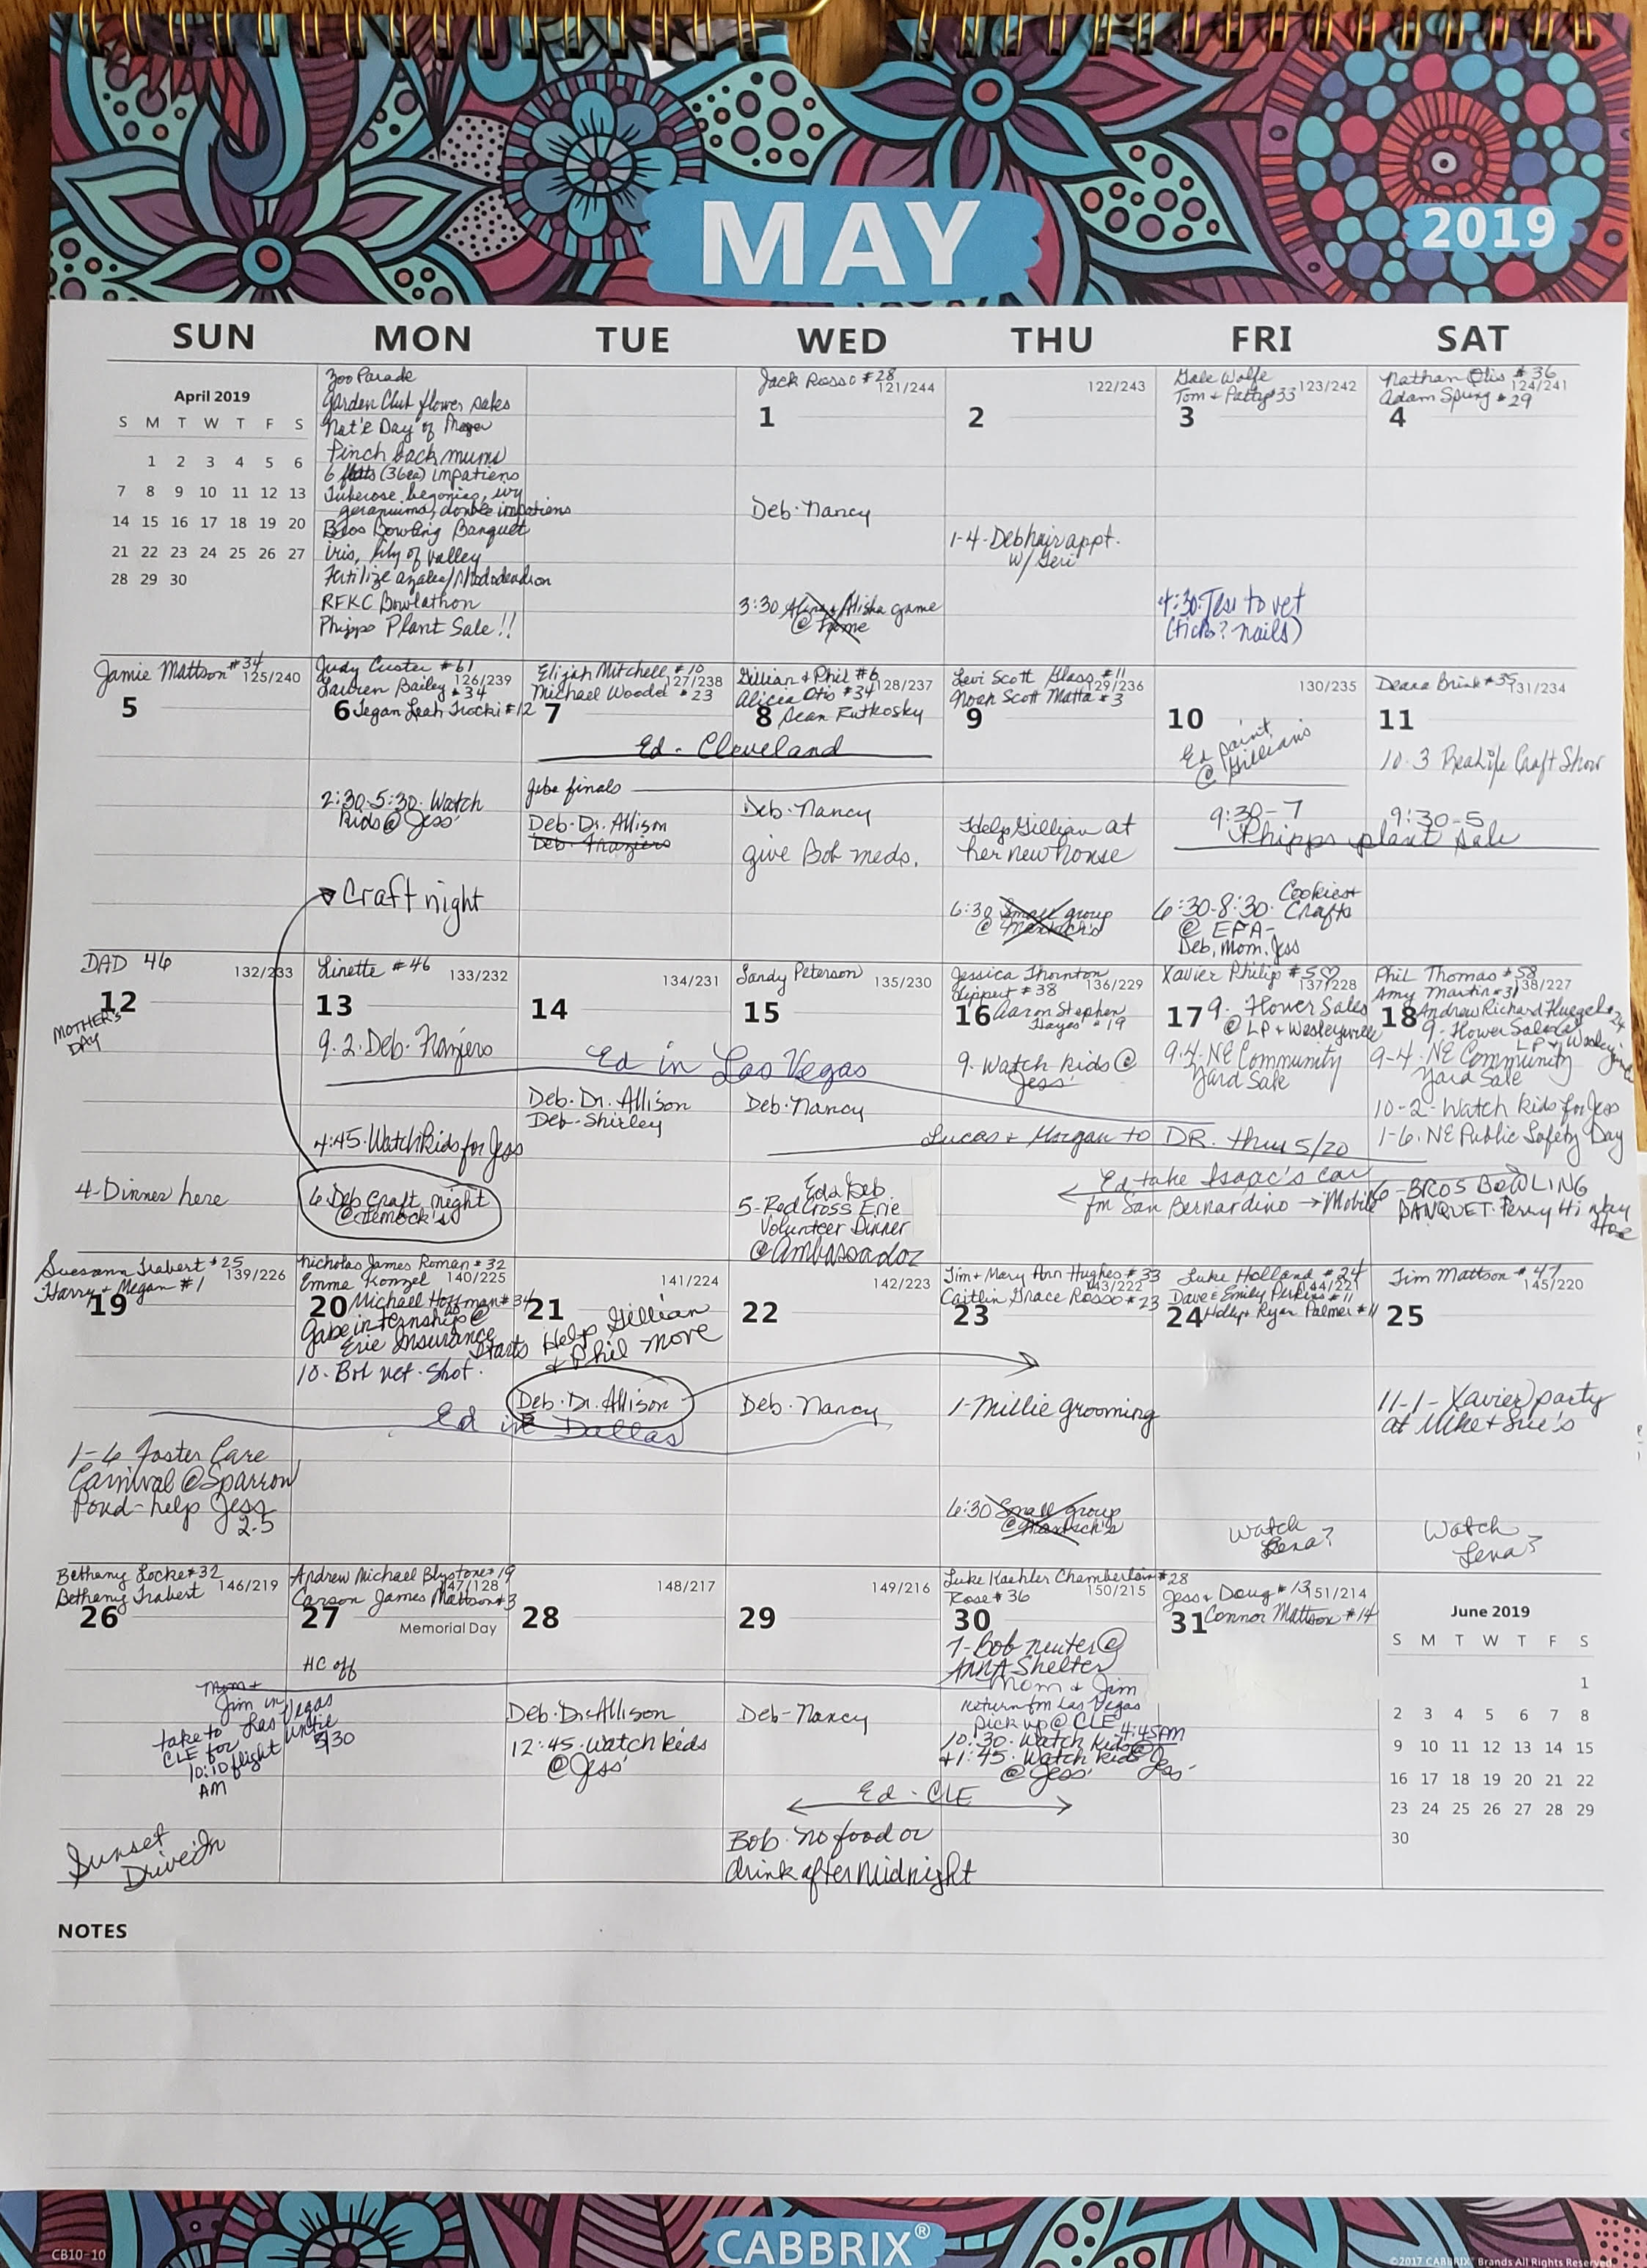 MAY
2019
SUN MON TUE WED THU FRI SAT
April 2019
S M T W T F S
1 2 3 4 5 6
7 8 9 10 11 12 13
14 15 16 17 18 19 20
21 22 23 24 25 26 27
28 29 30
Zoo Parade
Garden Club flower sales
Nat'l Day of
Pinch back mums
6 flats (36ea) impatiens
Tuberose begonias, ivy
geraniums, double impatiens
Bros Bowling Banquet
iris, lily of valley
Fertilize azalea/rhododendron
RFKC Bowlathon
Phipps Plant Sale!!
Jack Rosso #28
121/244
1
Deb-Nancy
3:30 Alisha game
@ home
122/243
2
1-4-Deb hair appt.
w/Geri
Gale Wolfe
Tom + Patty #33
123/242
3
4:30-Tess to vet
(ticks? nails)
Nathan Otis #36
124/241
Adam Spung #29
4
Jamie Mattson #34
125/240
5
Judy Custer #61
126/239
Lauren Bailey #34
6 Tegan Leah Trocki #12
2:30-5:30-Watch
kids @ Jess'
Craft night
Elijah Mitchell #10
127/238
Michael Woodel #23
7
Ed - Cleveland
Gabe finals
Deb-Dr. Allison
Deb-Fraziers
Gillian & Phil #6
128/237
Alicia Otis #34
8 Sean Rutkosky
Deb-Nancy
give Bob meds.
Levi Scott Glass #11
129/236
Noah Scott Matta #3
9
Help Gillian at
her new house
6:30 Small group
@
130/235
10
Ed paint
@ Gillian's
9:30-7
Phipps plant sale
6:30-8:30-Cookies+
Crafts
@ EFA-
Deb, Mom, Jess
Deana Brink #35
131/234
11
10-3 Craft Show
9:30-5
DAD 46
132/233
12
MOTHER'S
DAY
4-Dinner here
Linette #46
133/232
13
9-2-Deb-Fraziers
4:45-Watch kids for Jess
6 Deb Craft night
@
134/231
14
Ed in Las Vegas
Deb-Dr. Allison
Deb-Shirley
Sandy Peterson
135/230
15
Deb-Nancy
Lucas + Morgan to DR. thru 5/20
Ed & Deb
5-Red Cross Erie
Volunteer Dinner
@ Ambassador
Jessica Thornton
136/229
Hippert #38
16 Aaron Stephen
Hayes #19
9-Watch kids @
Jess'
Ed take Isaac's car
fm San Bernardino → Mobile
Xavier Philip #5♡
137/228
17 9-Flower Sales
@ LP + Wesleyville
9-4-NE Community
Yard Sale
Phil Thomas #58
138/227
Amy Martin #31
18 Andrew Richard Kluegel #24
9-Flower Sales @
LP + Wesleyville
9-4-NE Community
Yard Sale
10-2-Watch kids for Jess
1-6-NE Public Safety Day
6-BROS BOWLING
BANQUET-Perry Hi way
Hose
Suesann Trabert #25
139/226
Harry + Megan #1
19
1-6 Foster Care
Carnival @ Sparrow
Pond-help Jess
2-5
Nicholas James Roman #32
Emma Konzel
140/225
20 Michael Hoffman #34
Gabe internship @
Erie Insurance
starts
10-Bob vet-shot.
141/224
21
Help Gillian
+ Phil move
Deb-Dr. Allison
Ed in Dallas
142/223
22
Deb-Nancy
Jim + Mary Ann Hughes #33
143/222
Caitlin Grace Rosso #23
23
1-Millie grooming
6:30 Small group
@
Luke Holland #24
144/221
Dave & Emily Perkins #11
24 Holly + Ryan Palmer #11
Watch
Lena?
Jim Mattson #47
145/220
25
11-1-Xavier party
at Mike + Sue's
Watch
Lena?
Bethany Locke #32
146/219
Bethany Trabert
26
Mom +
Jim in
Las Vegas
until
5/30
take to
CLE for
10:10 flight
AM
Sunset
Drive In
Andrew Michael Blystone #19
147/128
Carson James Mattson #3
27
Memorial Day
HC off
148/217
28
Deb-Dr. Allison
12:45-Watch kids
@ Jess'
149/216
29
Deb-Nancy
Ed - CLE
Bob-no food or
drink after midnight
Luke Kaehler Chamberlain #28
150/215
Rose #36
30
7-Bob neuter @
ANNA Shelter
Mom & Jim
return fm Las Vegas
pick up @ CLE 4:45AM
10:30-Watch kids @ Jess'
+1:45-Watch kids
@ Jess'
Jess + Doug #13
151/214
31 Connor Mattson #14
June 2019
S M T W T F S
1
2 3 4 5 6 7 8
9 10 11 12 13 14 15
16 17 18 19 20 21 22
23 24 25 26 27 28 29
30
NOTES
CB10-10
CABBRIX®
©2017 CABBRIX® Brands All Rights Reserved.